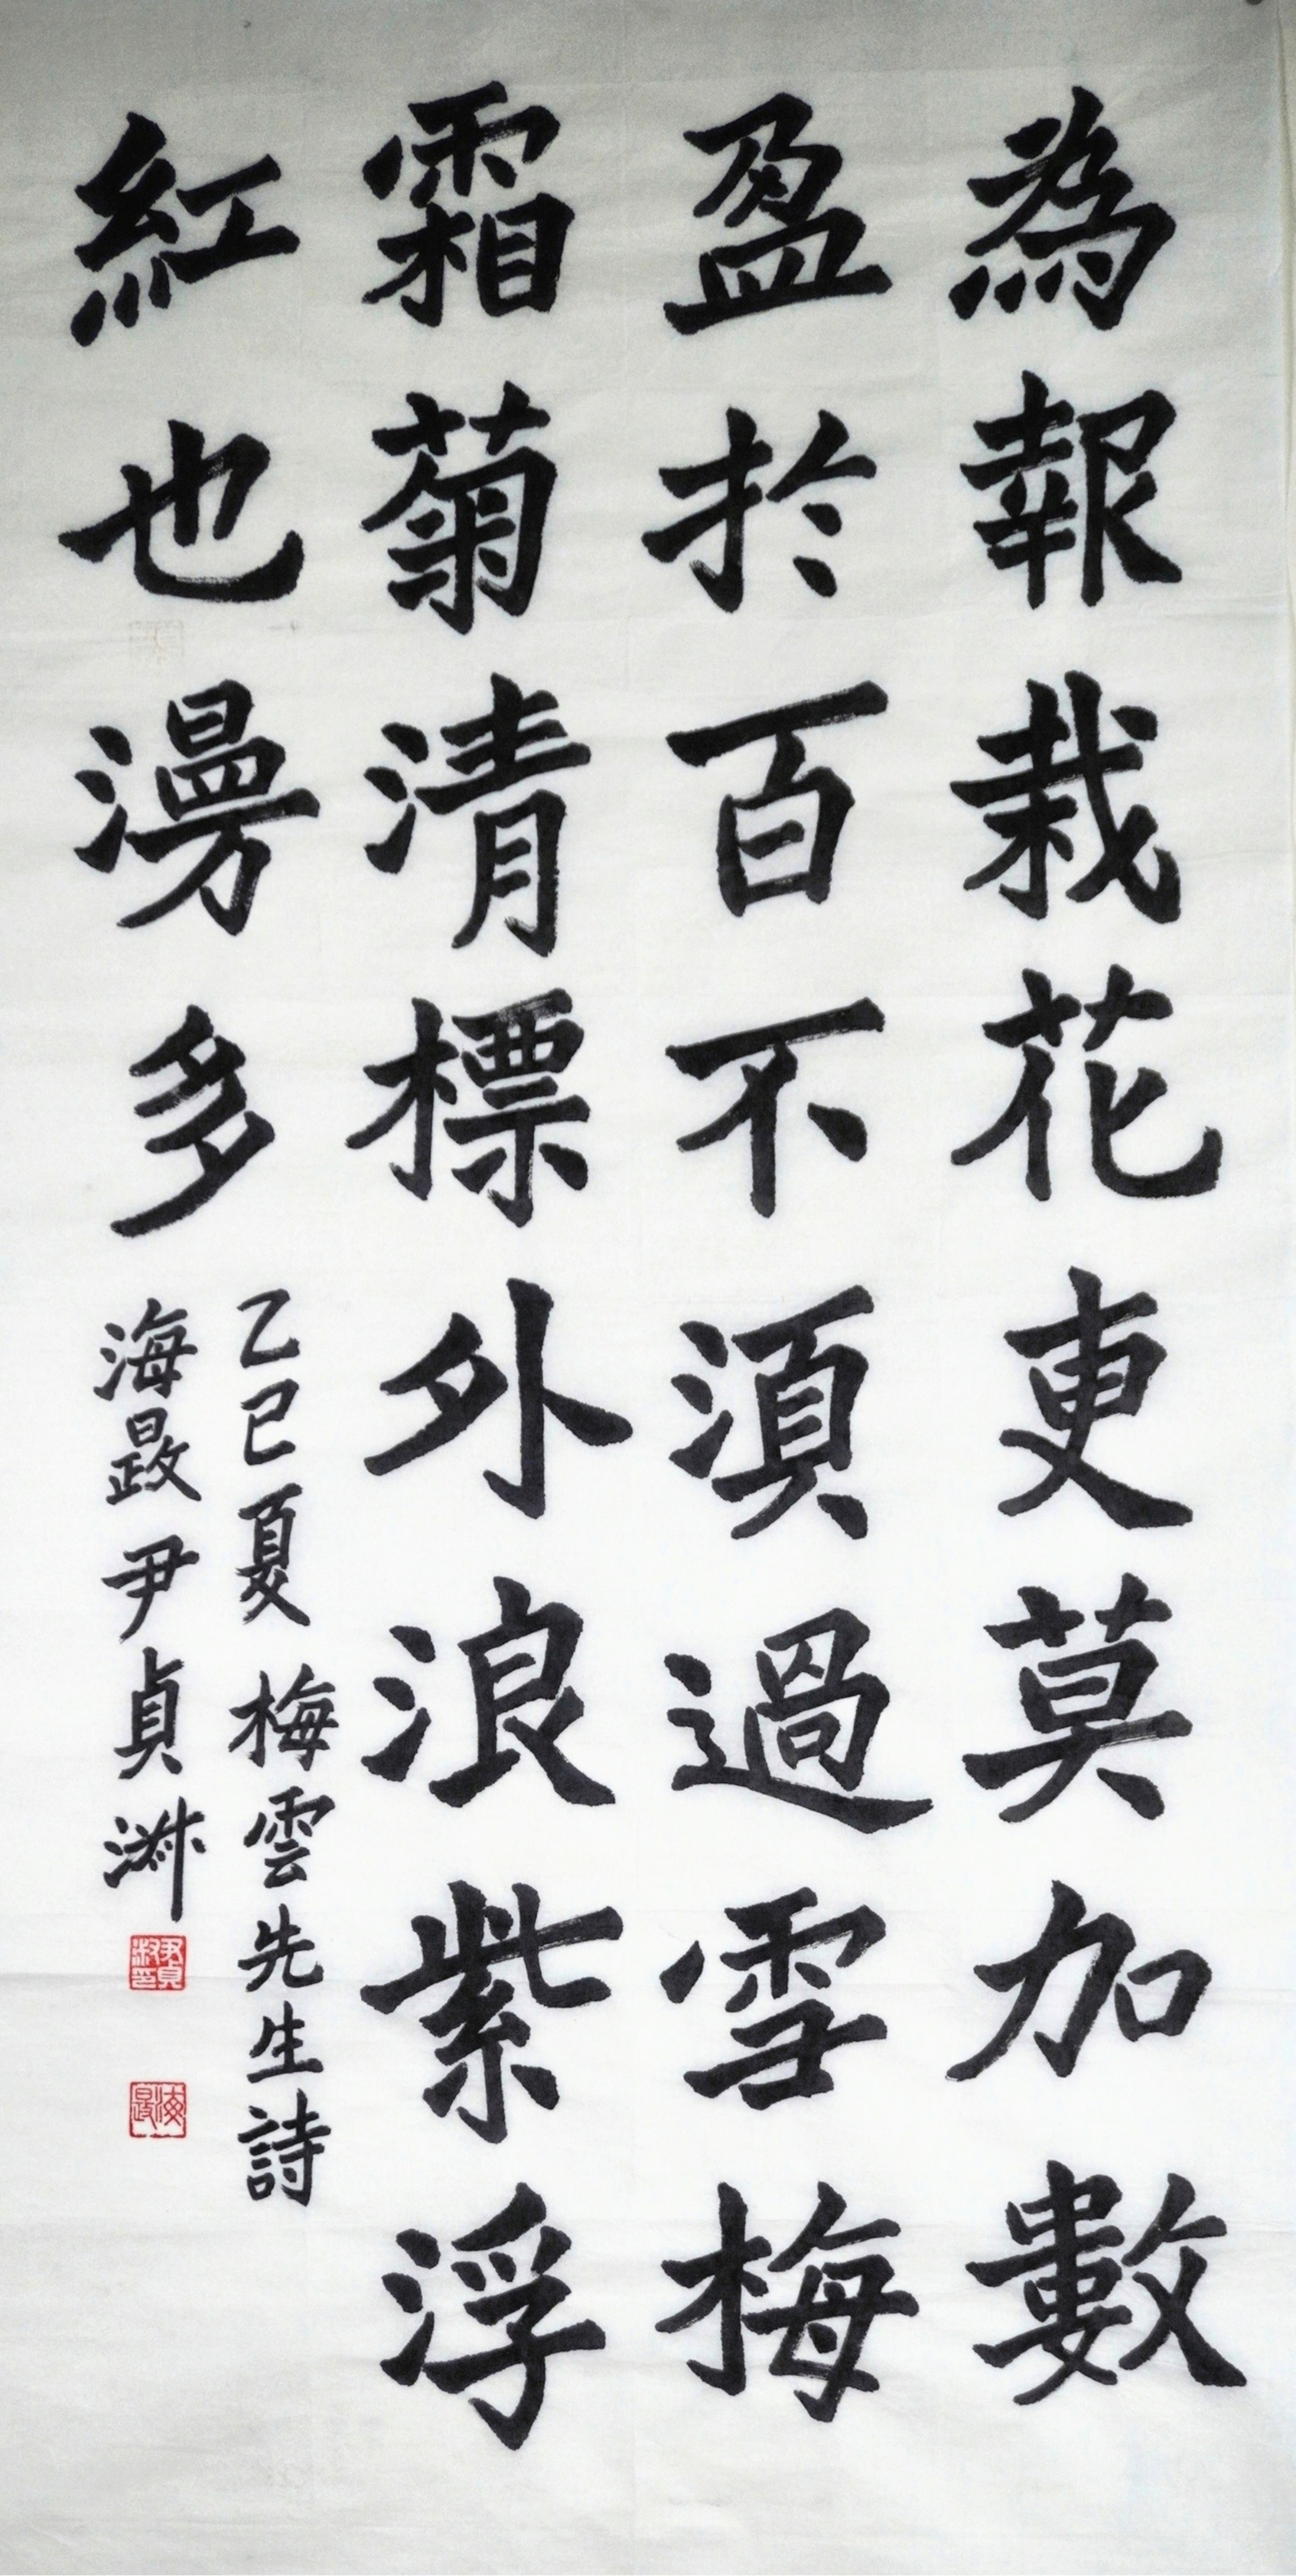 為報栽花更莫加數
盈於百不須過雪梅
霜菊清標外浪紫浮
紅也漫多
乙巳夏 梅雲先生詩
海㬚尹貞淋